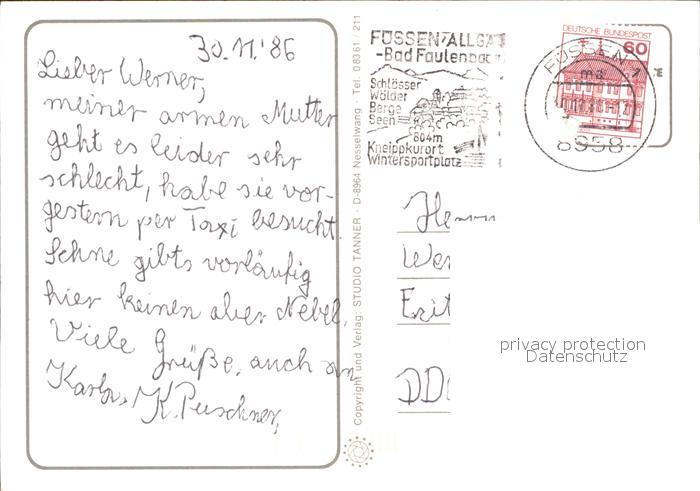 30.11.'86
Lieber Werner,
meiner armen Mutter
geht es leider sehr
schlecht, habe sie vor-
gestern per Taxi besucht.
Schnee gibts vorläufig
hier keinen aber Nebel.
Viele Grüße, auch an
K. Puschner,
Copyright und Verlag: STUDIO TANNER · D-8964 Nesselwang · Tel. 08361 / 211
FÜSSEN/ALLGÄ
-Bad Faulenbac
Schlösser
Wälder
Berge
Seen
804m
Kneippkurort
Wintersportplatz
DEUTSCHE BUNDESPOST
60
FÜSSEN 1
ma
8958
Herrn
We
DD
privacy protection
Datenschutz